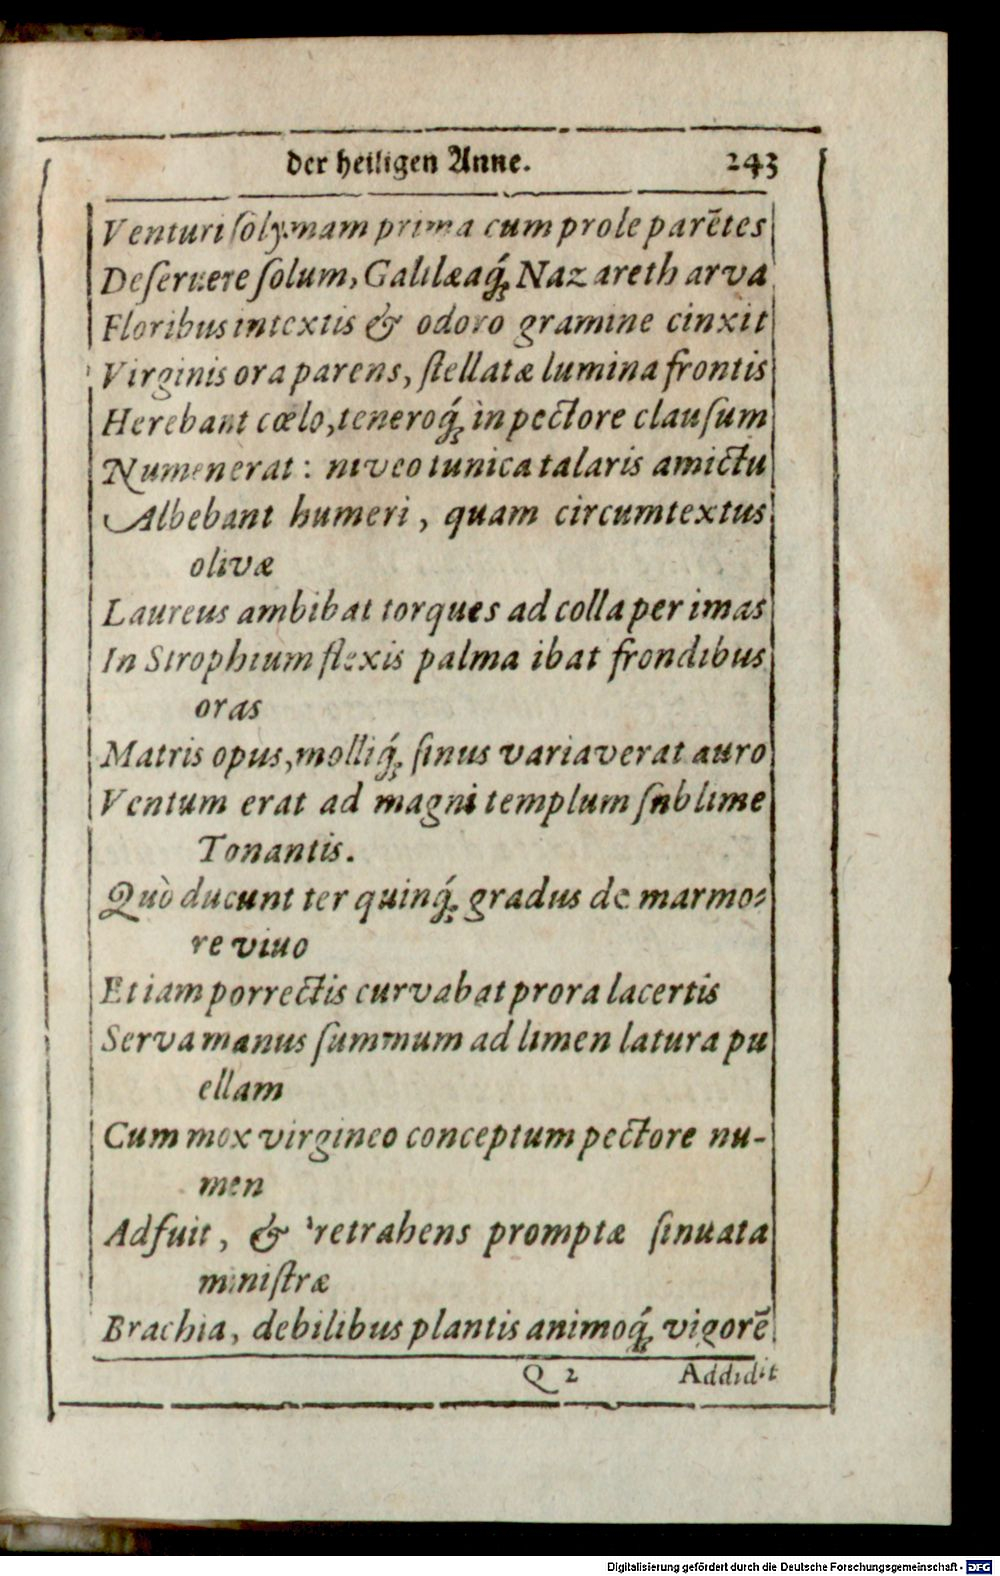 der heiligen Anne. 243
Venturi ſolymam prima cum prole parẽtes
Deſeruere ſolum, Galilæaq́; Nazareth arva
Floribus intextis & odoro gramine cinxit
Virginis ora parens, ſtellatæ lumina frontis
Herebant cœlo, teneroq́; in pectore clauſum
Numen erat: niveo tunica talaris amictu
Albebant humeri, quam circumtextus
olivæ
Laureus ambibat torques ad colla per imas
In Strophium flexis palma ibat frondibus
oras
Matris opus, molliq́; ſinus variaverat auro
Ventum erat ad magni templum ſnblime
Tonantis.
Quò ducunt ter quinq́; gradus de marmo-
re viuo
Etiam porrectis curvabat prora lacertis
Serva manus ſummum ad limen latura pu
ellam
Cum mox virgineo conceptum pectore nu-
men
Adfuit, & retrahens promptæ ſinuata
miniſtræ
Brachia, debilibus plantis animoq́; vigorẽ
Q 2 Addidit
Digitalisierung gefördert durch die Deutsche Forschungsgemeinschaft - DFG